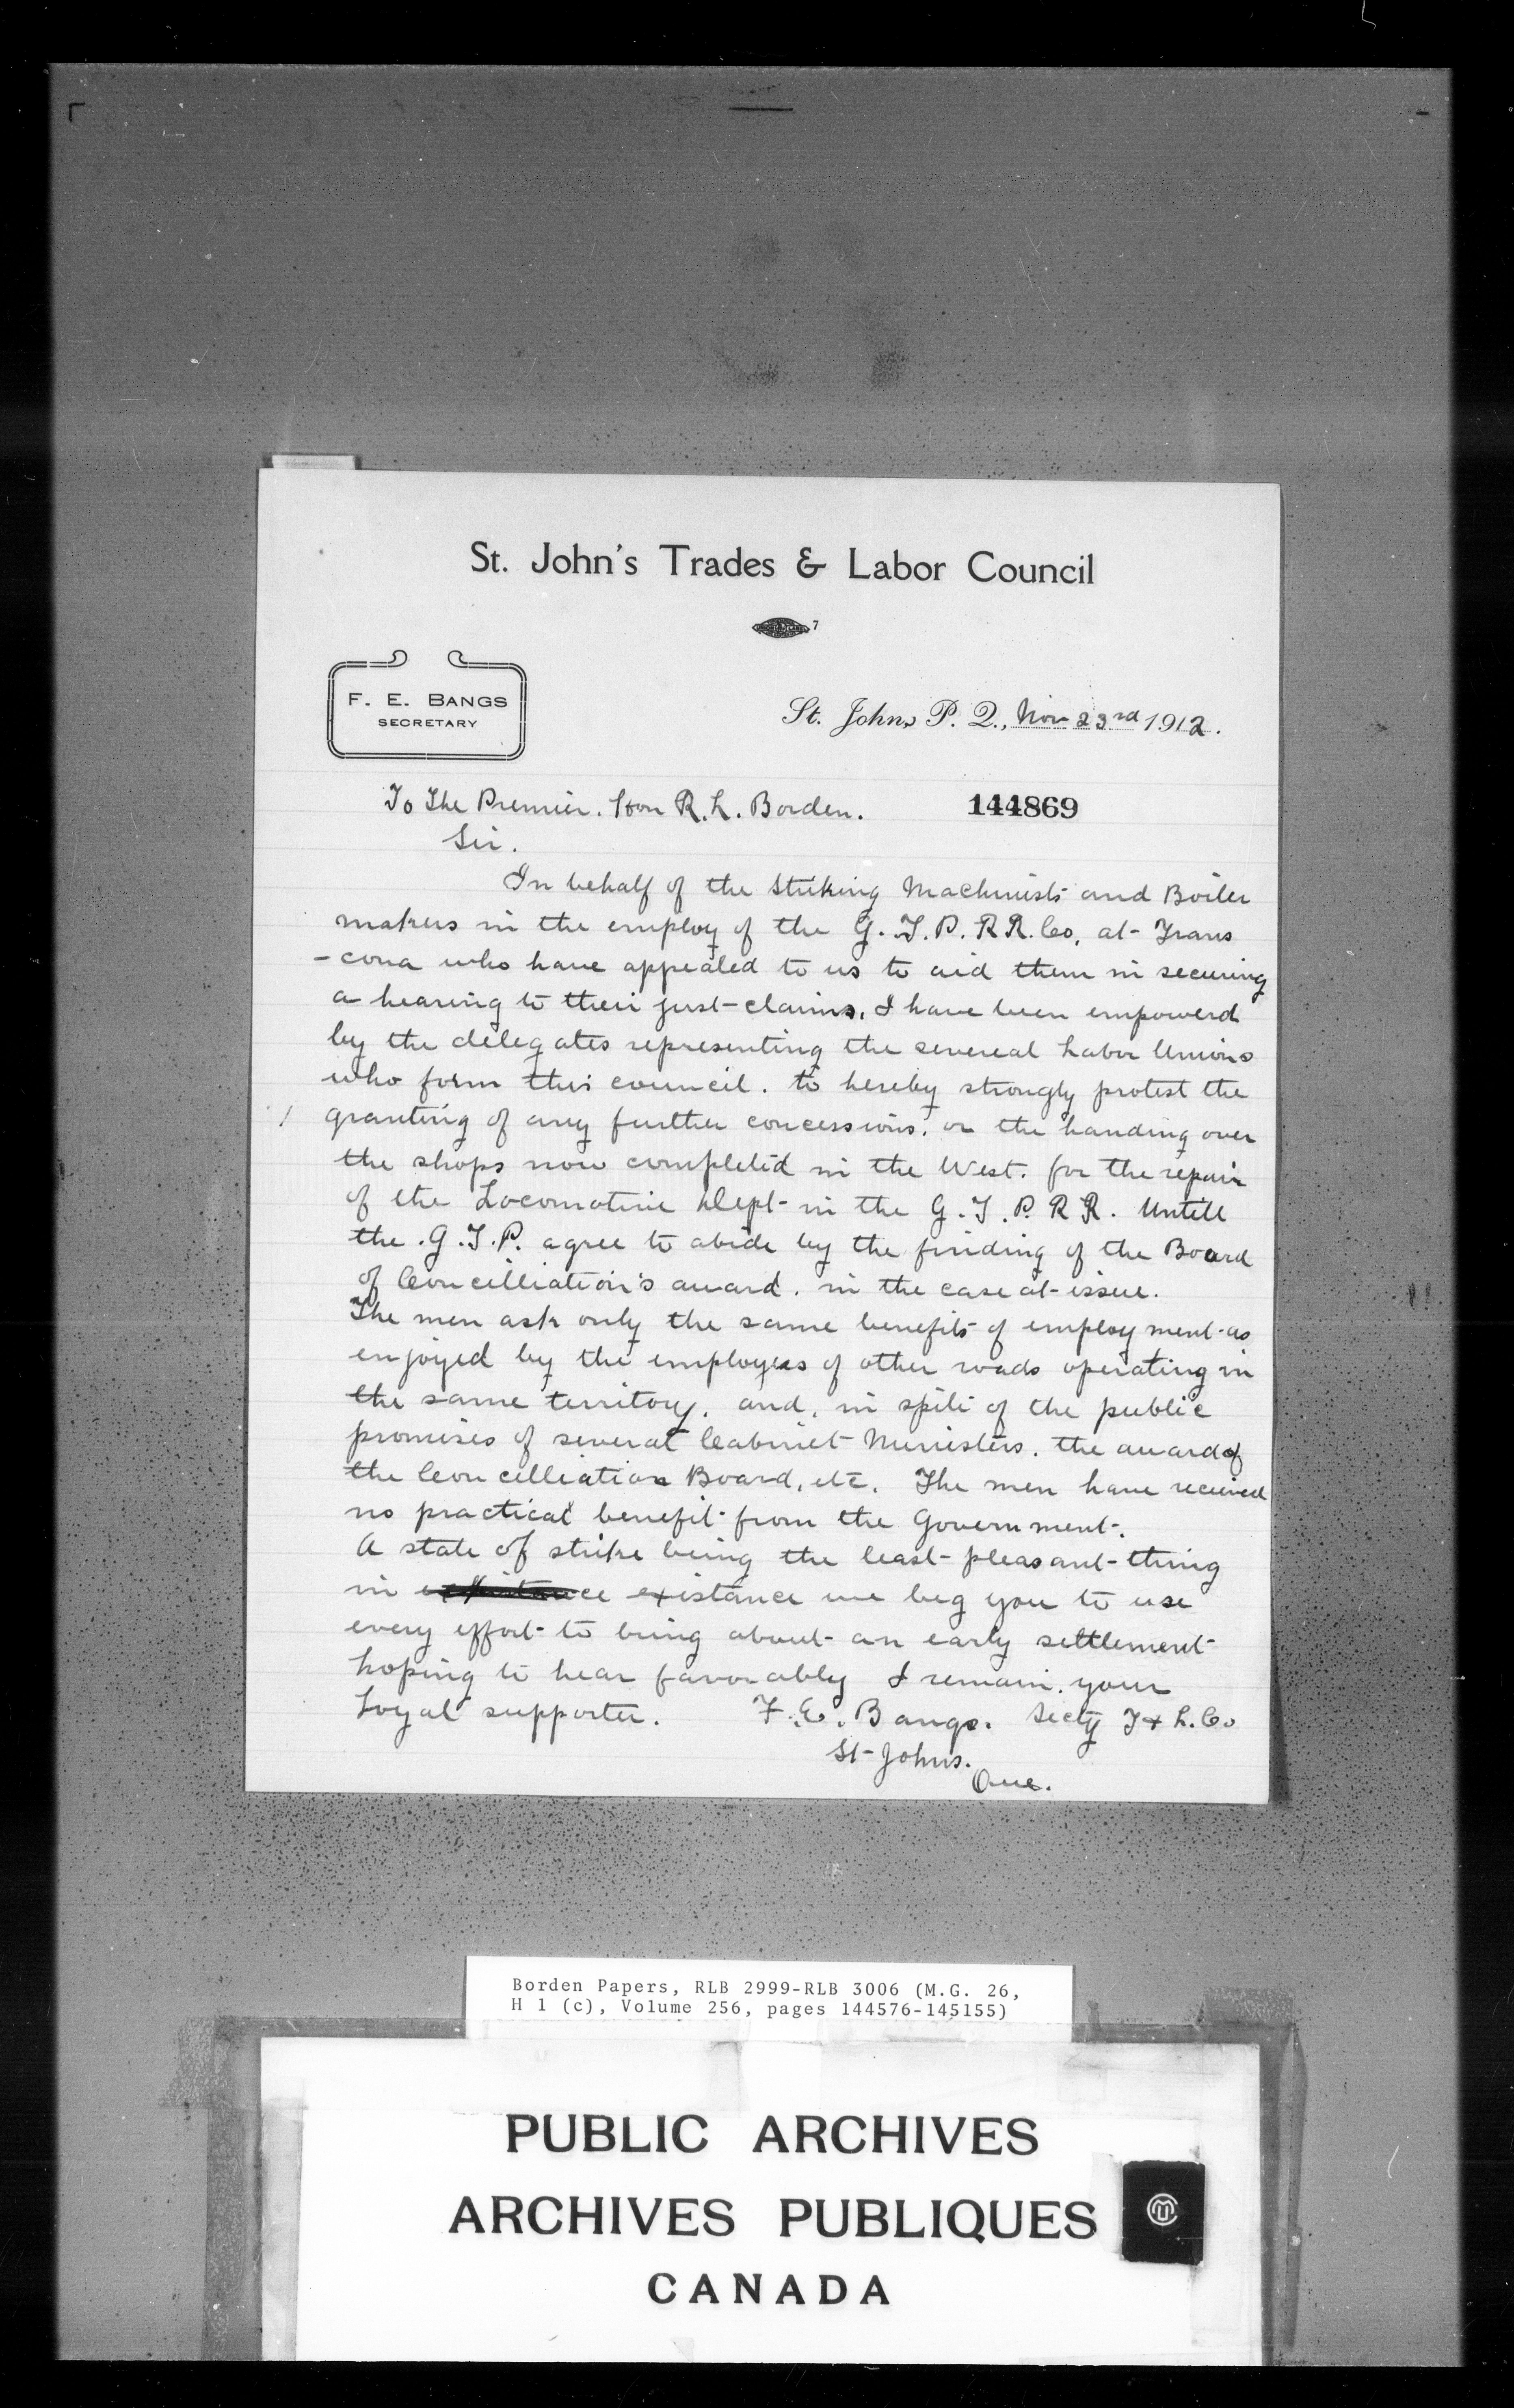 St. John's Trades & Labor Council
7
F. E. BANGS
SECRETARY
St. Johns P. Q., Nov 23rd 1912.
To The Premier. Hon R. L. Borden.
144869
Sir.
In behalf of the Striking Machinists and Boiler
makers in the employ of the G. T. P. R R. Co. at Trans
-cona who have appealed to us to aid them in securing
a hearing to their just claims, I have been empowerd
by the delegates representing the severeal Labor Unions
who form this council. to hereby strongly protest the
granting of any further concessions. or the handing over
the shops now completed in the West. for the repair
of the Locomotive Dept in the G. T. P. R R. Untill
the G. T. P. agree to abide by the finding of the Board
of Concilliation's award. in the case at issue.
The men ask only the same benefits of employment as
enjoyed by the employees of other roads operating in
the same territory. and. in spite of the public
promises of several Cabinet Ministers. the award of
the Concilliation Board, etc. The men have received
no practical benefit from the Government.
A state of strike being the least pleasant thing
in existance we beg you to use
every effort to bring about an early settlement
hoping to hear favorably I remain. your
Loyal supporter. F. E. Bangs. Secty T & L. Co
St Johns.
Que.
Borden Papers, RLB 2999-RLB 3006 (M.G. 26,
H 1 (c), Volume 256, pages 144576-145155)
PUBLIC ARCHIVES
ARCHIVES PUBLIQUES
CANADA